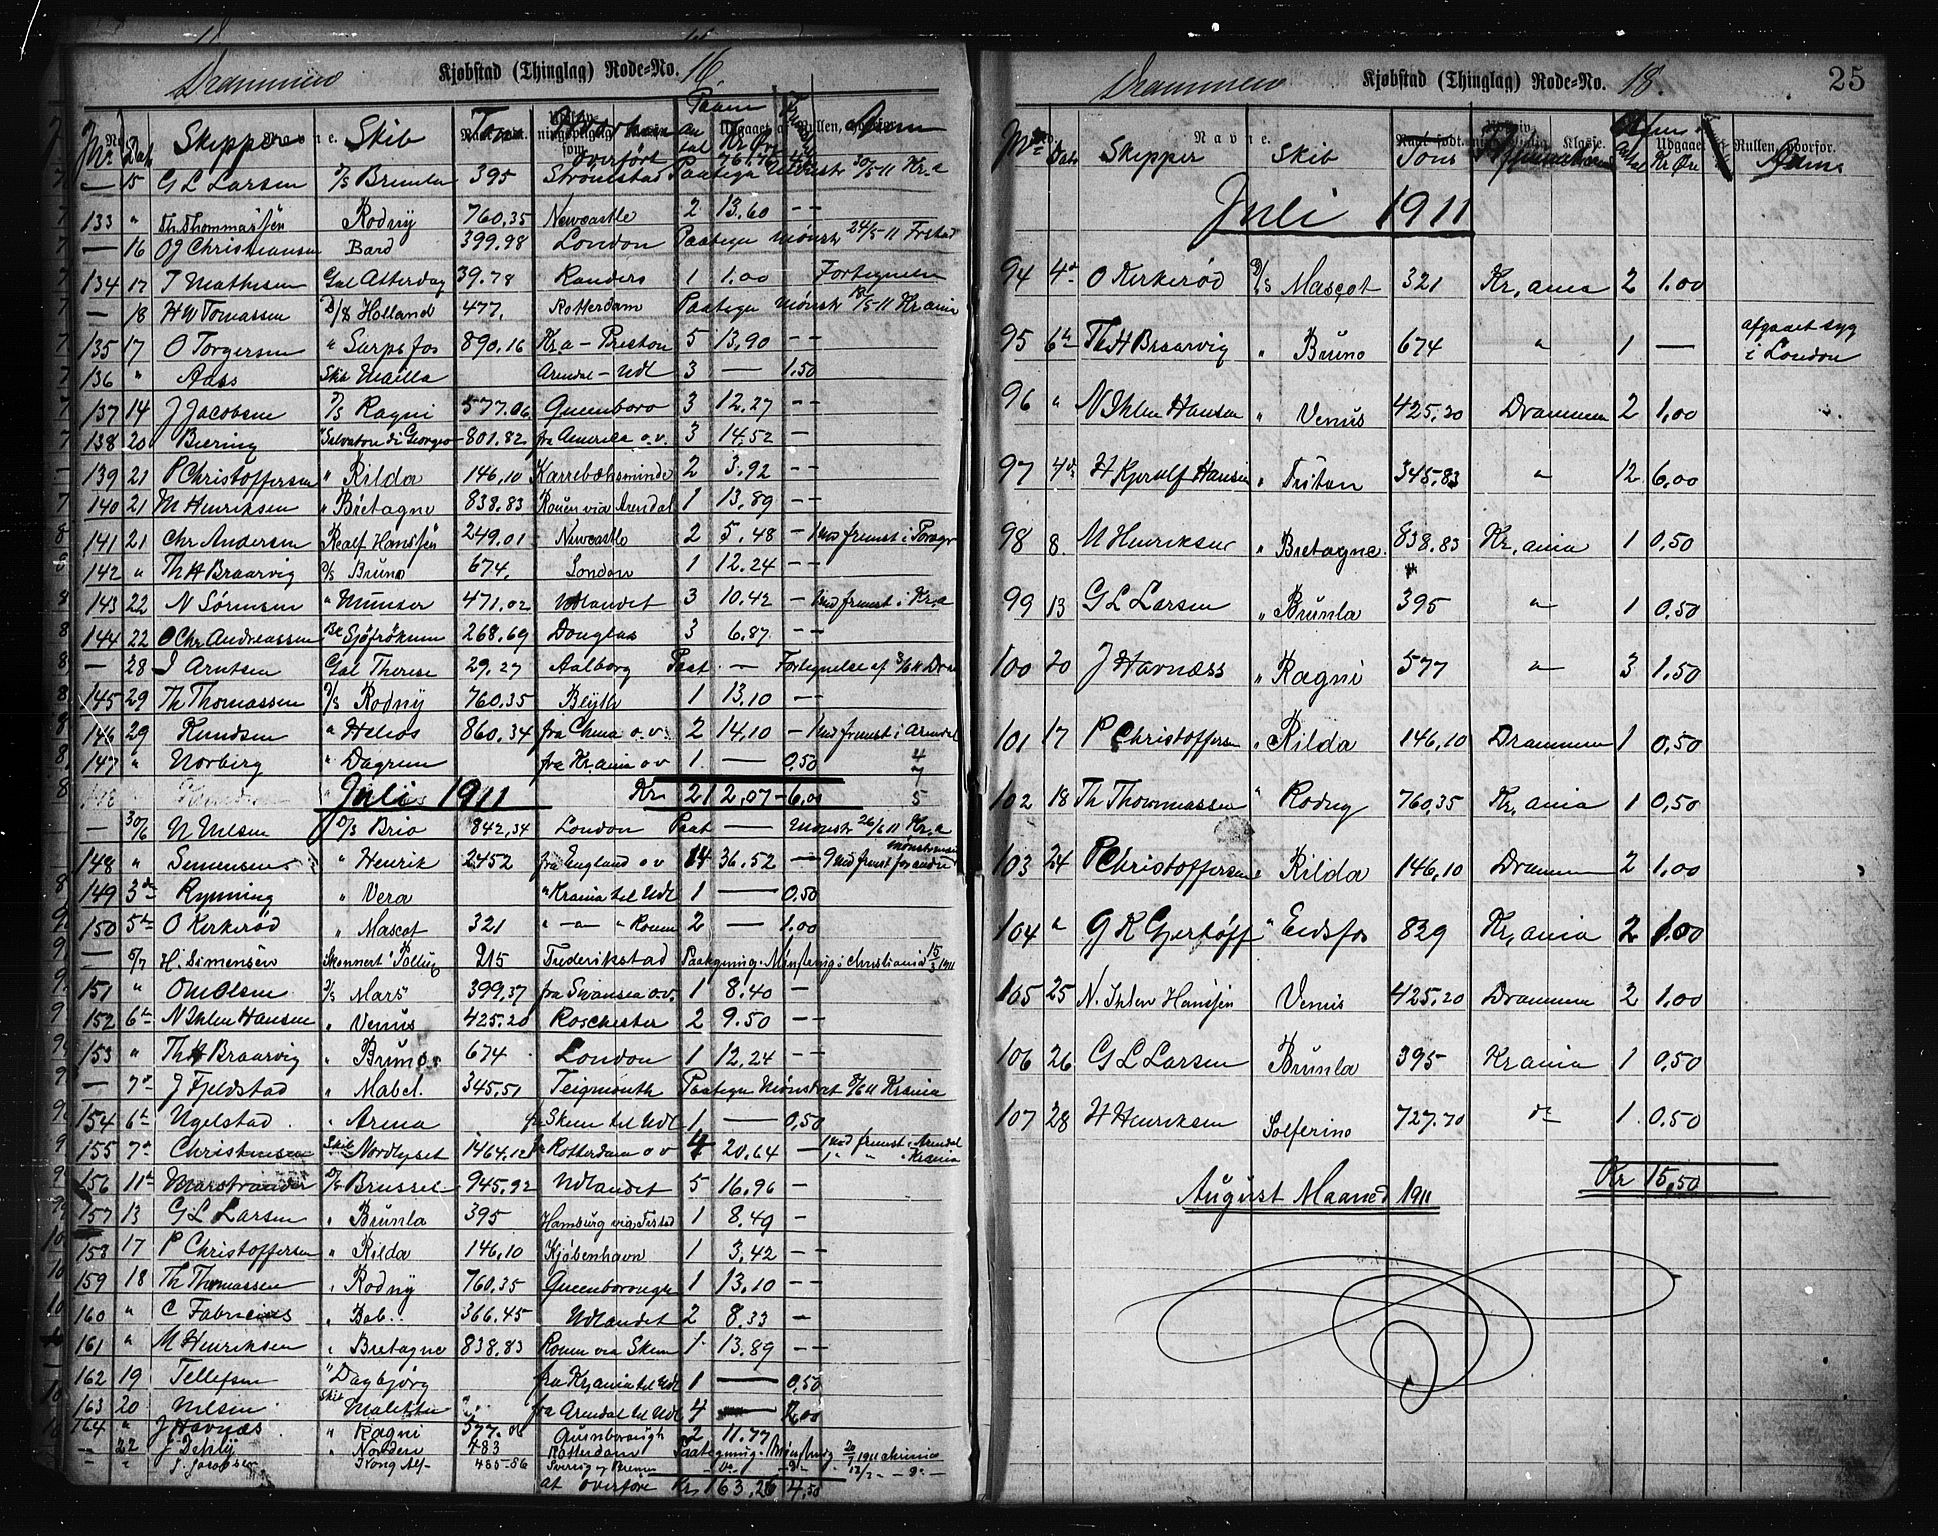 Drammen Kjøbstad (Thinglag) Rode-No. 16.
No Dat Skipper Skib Tons
overført 761.72
— 15 G L Larsen D/S Brunla 395 Strømstad Paategn Mønstr 30/5 11 Kr.a
133 " Th. Thommassen Rodny 760,35 Newcastle 2 13.60 — —
— 16 O J Christiansen Bard 399.98 London Paategn Mønstr 24/5 11 Frstad
134 17 T Mathisen Gal Atterdag 39.78 Randers 1 1.00 Fortegnelse
— 18 H W Tomassen D/S Holland 477, Rotterdam Paategn Mønstr 18/5 11 Krania
135 17 O Torgersen " Sarpsfos 890,16 Kr.a – Preston 5 13,90 — —
136 " Aass Skib Mailla Arendal – Udl 3 — 1.50
137 14 J Jacobsen D/S Ragni 577.06 Queenboro 3 12.27 — —
138 20 Biering " Salvatore di Georgio 801.82 fra Amerika o.v. 3 14,52 — —
139 21 P Christoffersen " Rilda 146,10 Karrebæksminde 2 3.92 — —
140 21 M Henriksen " Bretagne 838.83 Rouen via Arendal 1 13,89 — —
141 21 Chr Andersen Realf Hanssen 249.01 Newcastle 2 5.48 — 1 md frmst i Porsgr
142 " Th H Braarvig D/S Bruno 674. London 1 12.24 — —
143 22 N Sørensen " Munser 471,02 Udlandet 3 10.42 — 1 md frmst i Kr.a
144 22 O Chr Andreassen Bk Sjøfrøknen 268,69 Douglas 3 6.87 — —
— 28 J Arntsen Gal Therese 29.27 Aalborg Paat — Fortegnelse af Dram
145 29 Th Thomassen D/S Rodny 760.35 Blyth 1 13.10 — —
146 29 Knudsen " Helios 860.34 fra China o.v. 2 14,10 — 1 md frmst i Arendal
147 " Norberg " Dagrun fra Kr.ania o v 1 — 0,50
Juli 1911 Kr 212,07 – 6,00
— 30/6 N Nilsen D/S Brio 842,34 London Paat — Mønstr 26/6 11 Kr.a
148 " Semensen " Henrik 2452 fra England o v 14 36,52
149 3de Rynning " Vera " Krania til Udl 1 — 0,50
150 5te O Kirkerød " Mascot 321 " — " — " Rouen 2 — 1.00
— 5/7 H. Simensen Skonnert "Pollux" 215 Frederikstad Paategning. Mønstring i Christiania 15/3 1911
151 " O M Olsen D/S Mars 399,37 fra Swansea o.v. 1 8.40 — —
152 6te N Ihlen Hansen " Venus 425.20 Roschester 2 9.50 — —
153 " Th H Braarvig " Bruno 674 London 1 12.24 — —
— 7de J Fjeldstad " Mabel. 345,51 Teigmouth Paategn Mønstret 8/6 11 Krania
154 6te Ugelstad " Arma fr Skien til Udl 1 — 0,50
155 7de Christensen Skib Nordlyset 1464.12 fr Rotterdam o v 4 20.64 — 1 md frmst i Arendal
1 " " " Krania
156 11te Marstrander D/S Brussel 945,92 Udlandet 5 16,96 — —
157 13 G L Larsen " Brunla 395 Hamburg via Frstad 1 8.49 —
158 17 P Christoffersen " Rilda 146.10 Kjøbenhavn 1 3.42 — —
159 18 Th Thomassen " Rodny 760.35 Queenborough 1 13,10 — —
160 " C Fabricius " Bob. 366.45 Udlandet 2 8.33 —
161 " M Henriksen " Bretagne 838,83 Rouen via Skien 1. 13.89 — —
162 19 Tellefsen " Dagbjørg fra Kr.ania til Udl 1 — 0,50
163 20 Nilsen Skib fra Arendal til Udl 4 — 2,00
164 " J Havnæs " Ragni 577.06 Queenborough 2 11.77 —
— 22 " Norden 483 Rotterdam Paategning. Mønstring
— " Kong Alf 485-86
at overføre Kr. 163.26 4,50

Drammen Kjøbstad (Thinglag) Rode-No. 18. 25
No Dato Skipper Skib Tons Anm
Juli 1911
94 4de O Kirkerød D/S Mascot 321 Kr,ania 2 1.00
95 6te Th H Braarvig " Bruno 674 " 1 — afgaaet syg
i London
96 " N Ihlen Hansen " Venus 425.20 Drammen 2 1,00
97 4de H Kjerulf Hansen " Triton 345.83 " 12 6,00
98 8. M Henriksen " Bretagne. 838.83 Kr,ania 1 0,50
99 13 G L Larsen " Brunla 395 " 1 0,50
100 20 J Havnæss " Ragni 577 " 3 1,50
101 17 P Christoffersen " Rilda 146,10 Drammen 1 0,50
102 18 Th Thommassen " Rodny 760,35 Kr,ania 1 0,50
103 24 P Christoffersen " Rilda 146,10 Drammen 2 1,00
104 " G K Gjertøff " Eidsfos 829 Kr,ania 2 1.00
105 25 N. Ihlen Hanssen Venus 425.20 Drammen 2 1,00
106 26 G L Larsen Brunla 395 Krania 1 0,50
107 28 H Henriksen Solferino 727.70 do 1 0,50
Kr 15,50
August Maaned 1911